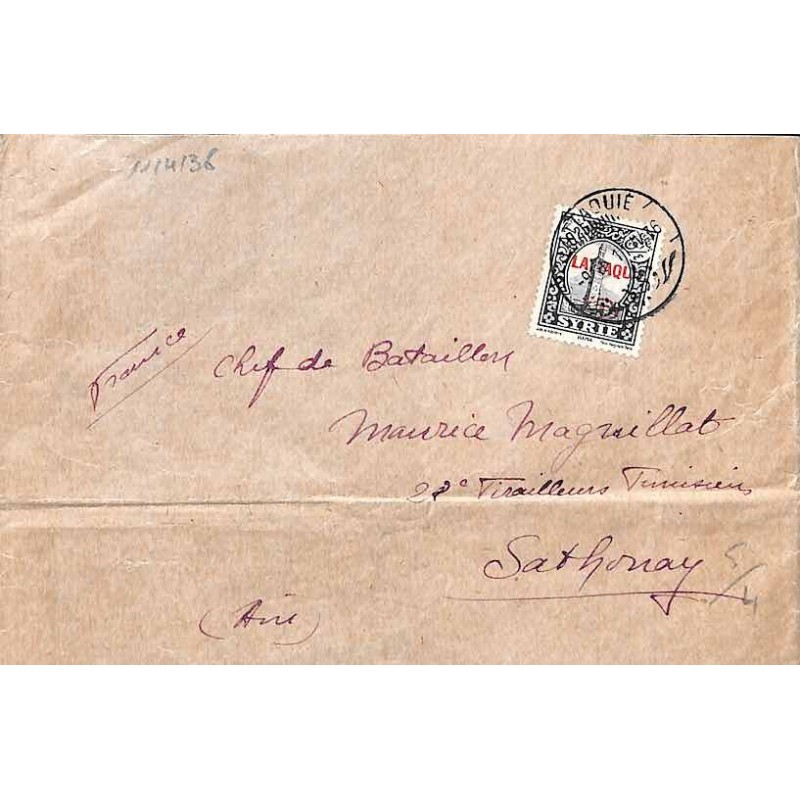 11/4/36
LATTAQUIÉ
SYRIE
France
Chef de Bataillon
Maurice Magnillat
28e Tirailleurs Tunisiens
Sathonay
(Ain)